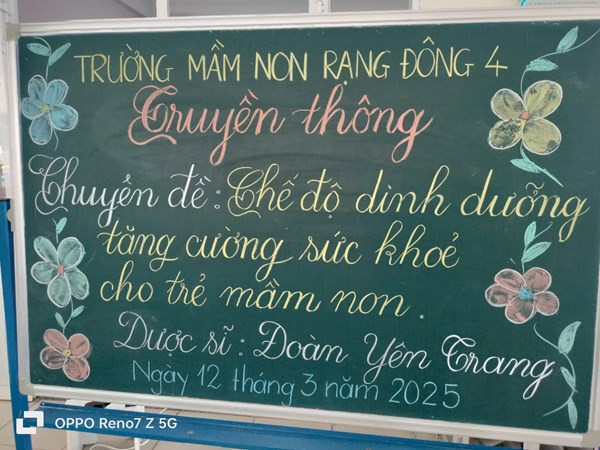 TRƯỜNG MẦM NON RẠNG ĐÔNG 4
Truyền thông
Chuyên đề: Chế độ dinh dưỡng
tăng cường sức khoẻ
cho trẻ mầm non.
Dược sĩ: Đoàn Yên Trang
Ngày 12 tháng 3 năm 2025
OPPO Reno7 Z 5G